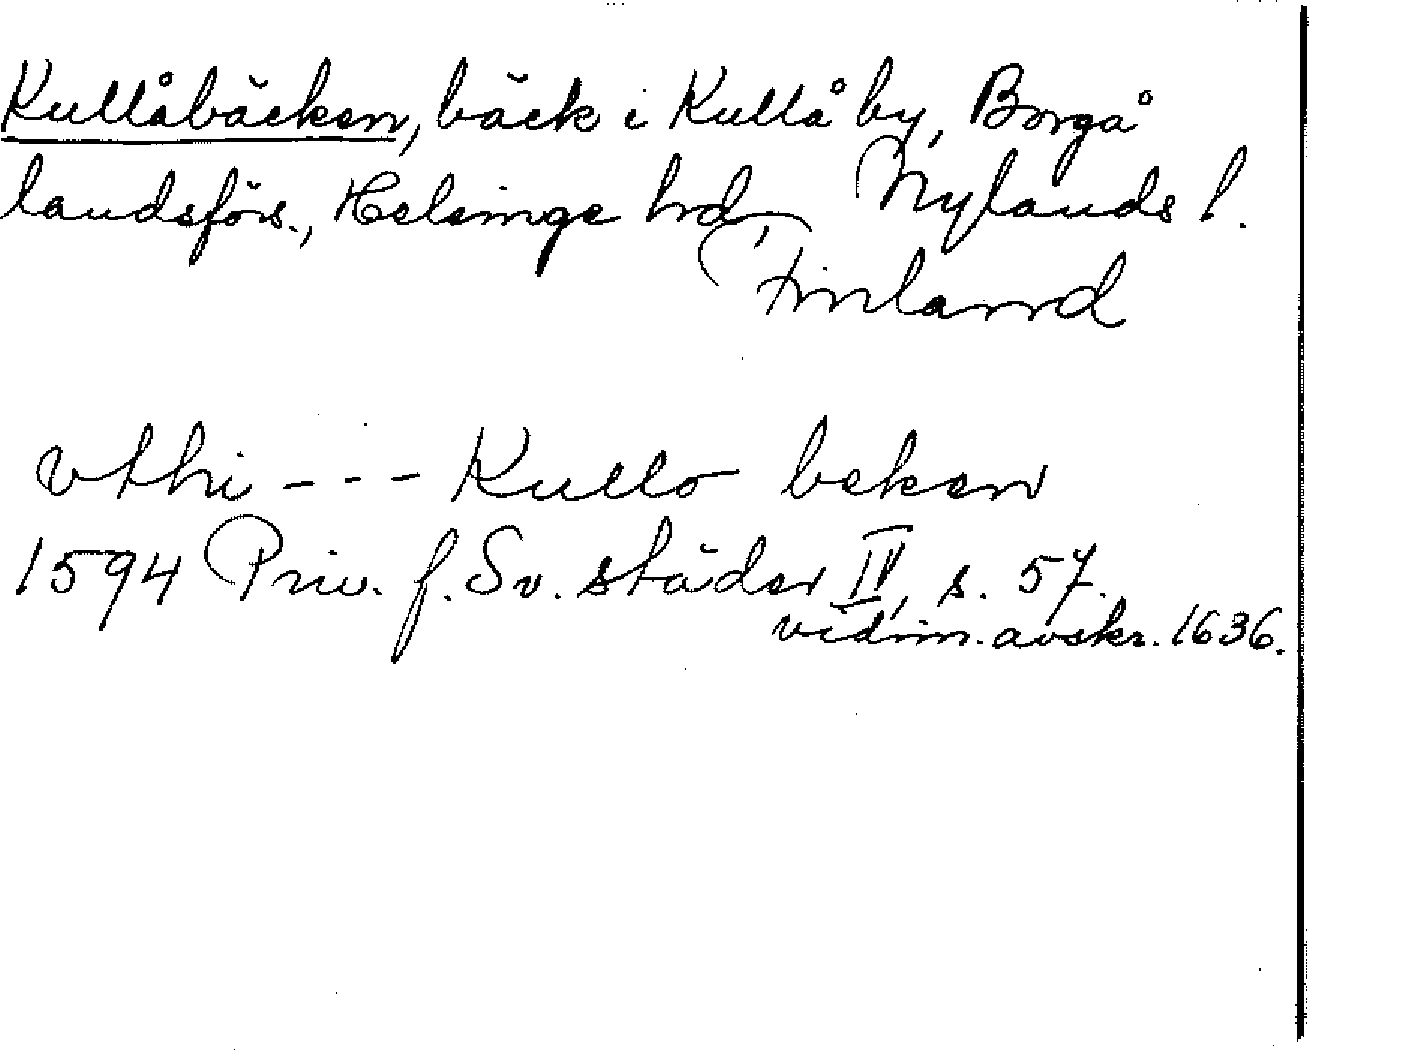 Kullåbäcken, bäck i Kullå by, Borgå
landsförs., Helsinge hrd, Nylands l.
Finland
vthi --- Kullo beken
1594 Priv. f. Sv. städer IV, s. 57.
vidim. avskr. 1636.